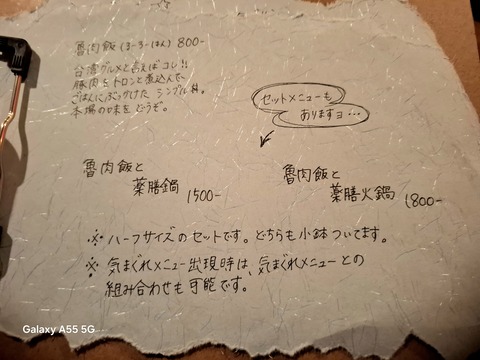 魯肉飯(るーろーはん) 800-
台湾グルメと言えばコレ!!
豚肉をトロンと煮込んで、
ごはんにぶっかけた シンプル丼。
本場の味をどうぞ。
セットメニューも
ありますヨ…
魯肉飯と
薬膳鍋 1500-
魯肉飯と
薬膳火鍋 1800-
※ ハーフサイズのセットです。どちらも小鉢ついてます。
※ 気まぐれメニュー出現時は、気まぐれメニューとの
組み合わせも可能です。
Galaxy A55 5G